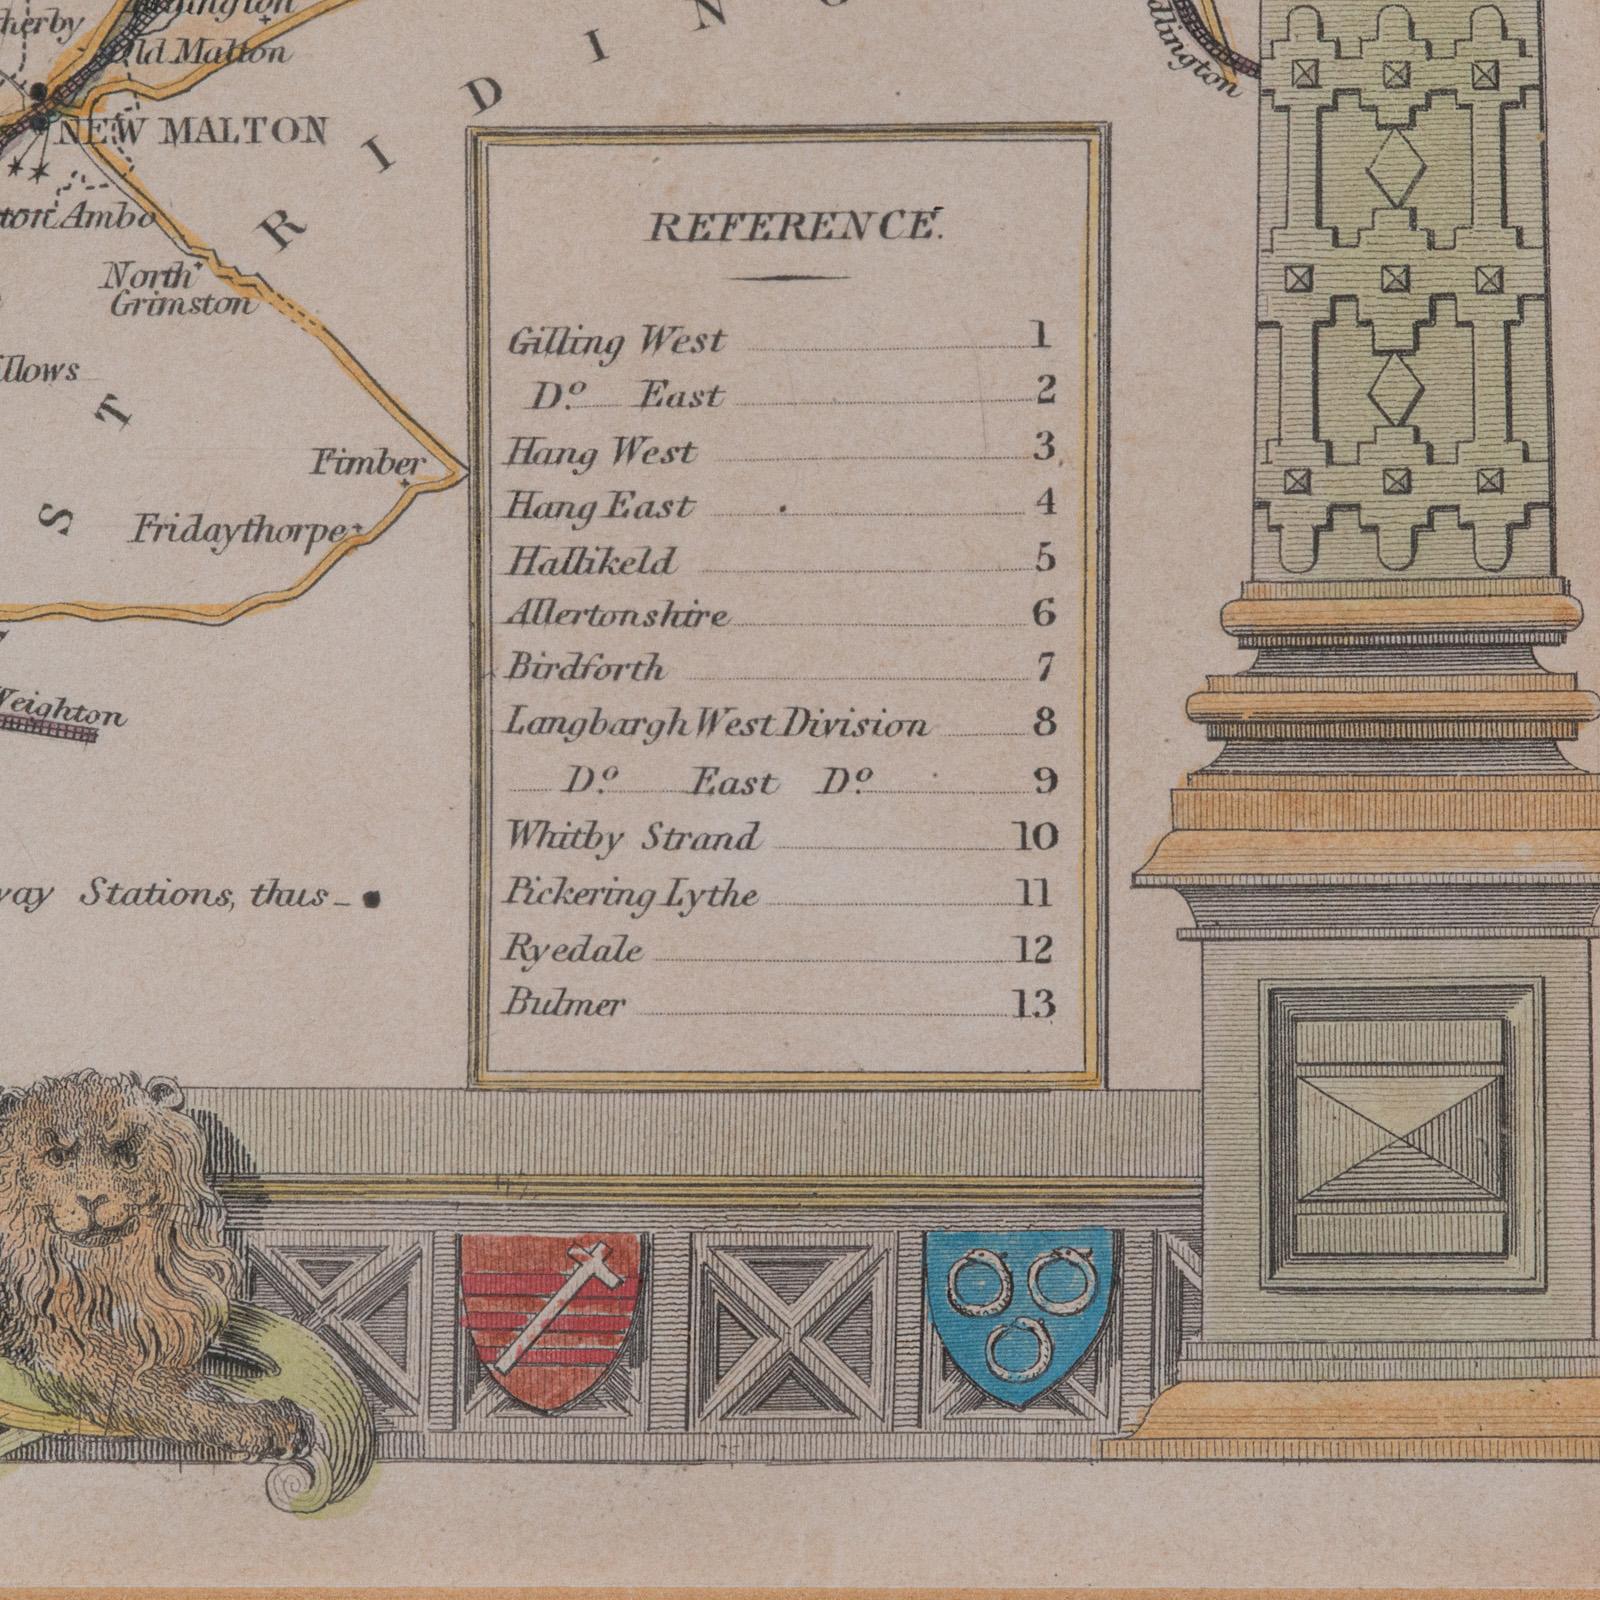 Old Malton
NEW MALTON
North
Grimston
Fimber
Fridaythorpe
Weighton
Stations, thus
R I D I N
S T
REFERENCE.
Gilling West 1
Dº. East 2
Hang West 3
Hang East 4
Hallikeld 5
Allertonshire 6
Birdforth 7
Langbargh West Division 8
Dº. East Dº. 9
Whitby Strand 10
Pickering Lythe 11
Ryedale 12
Bulmer 13